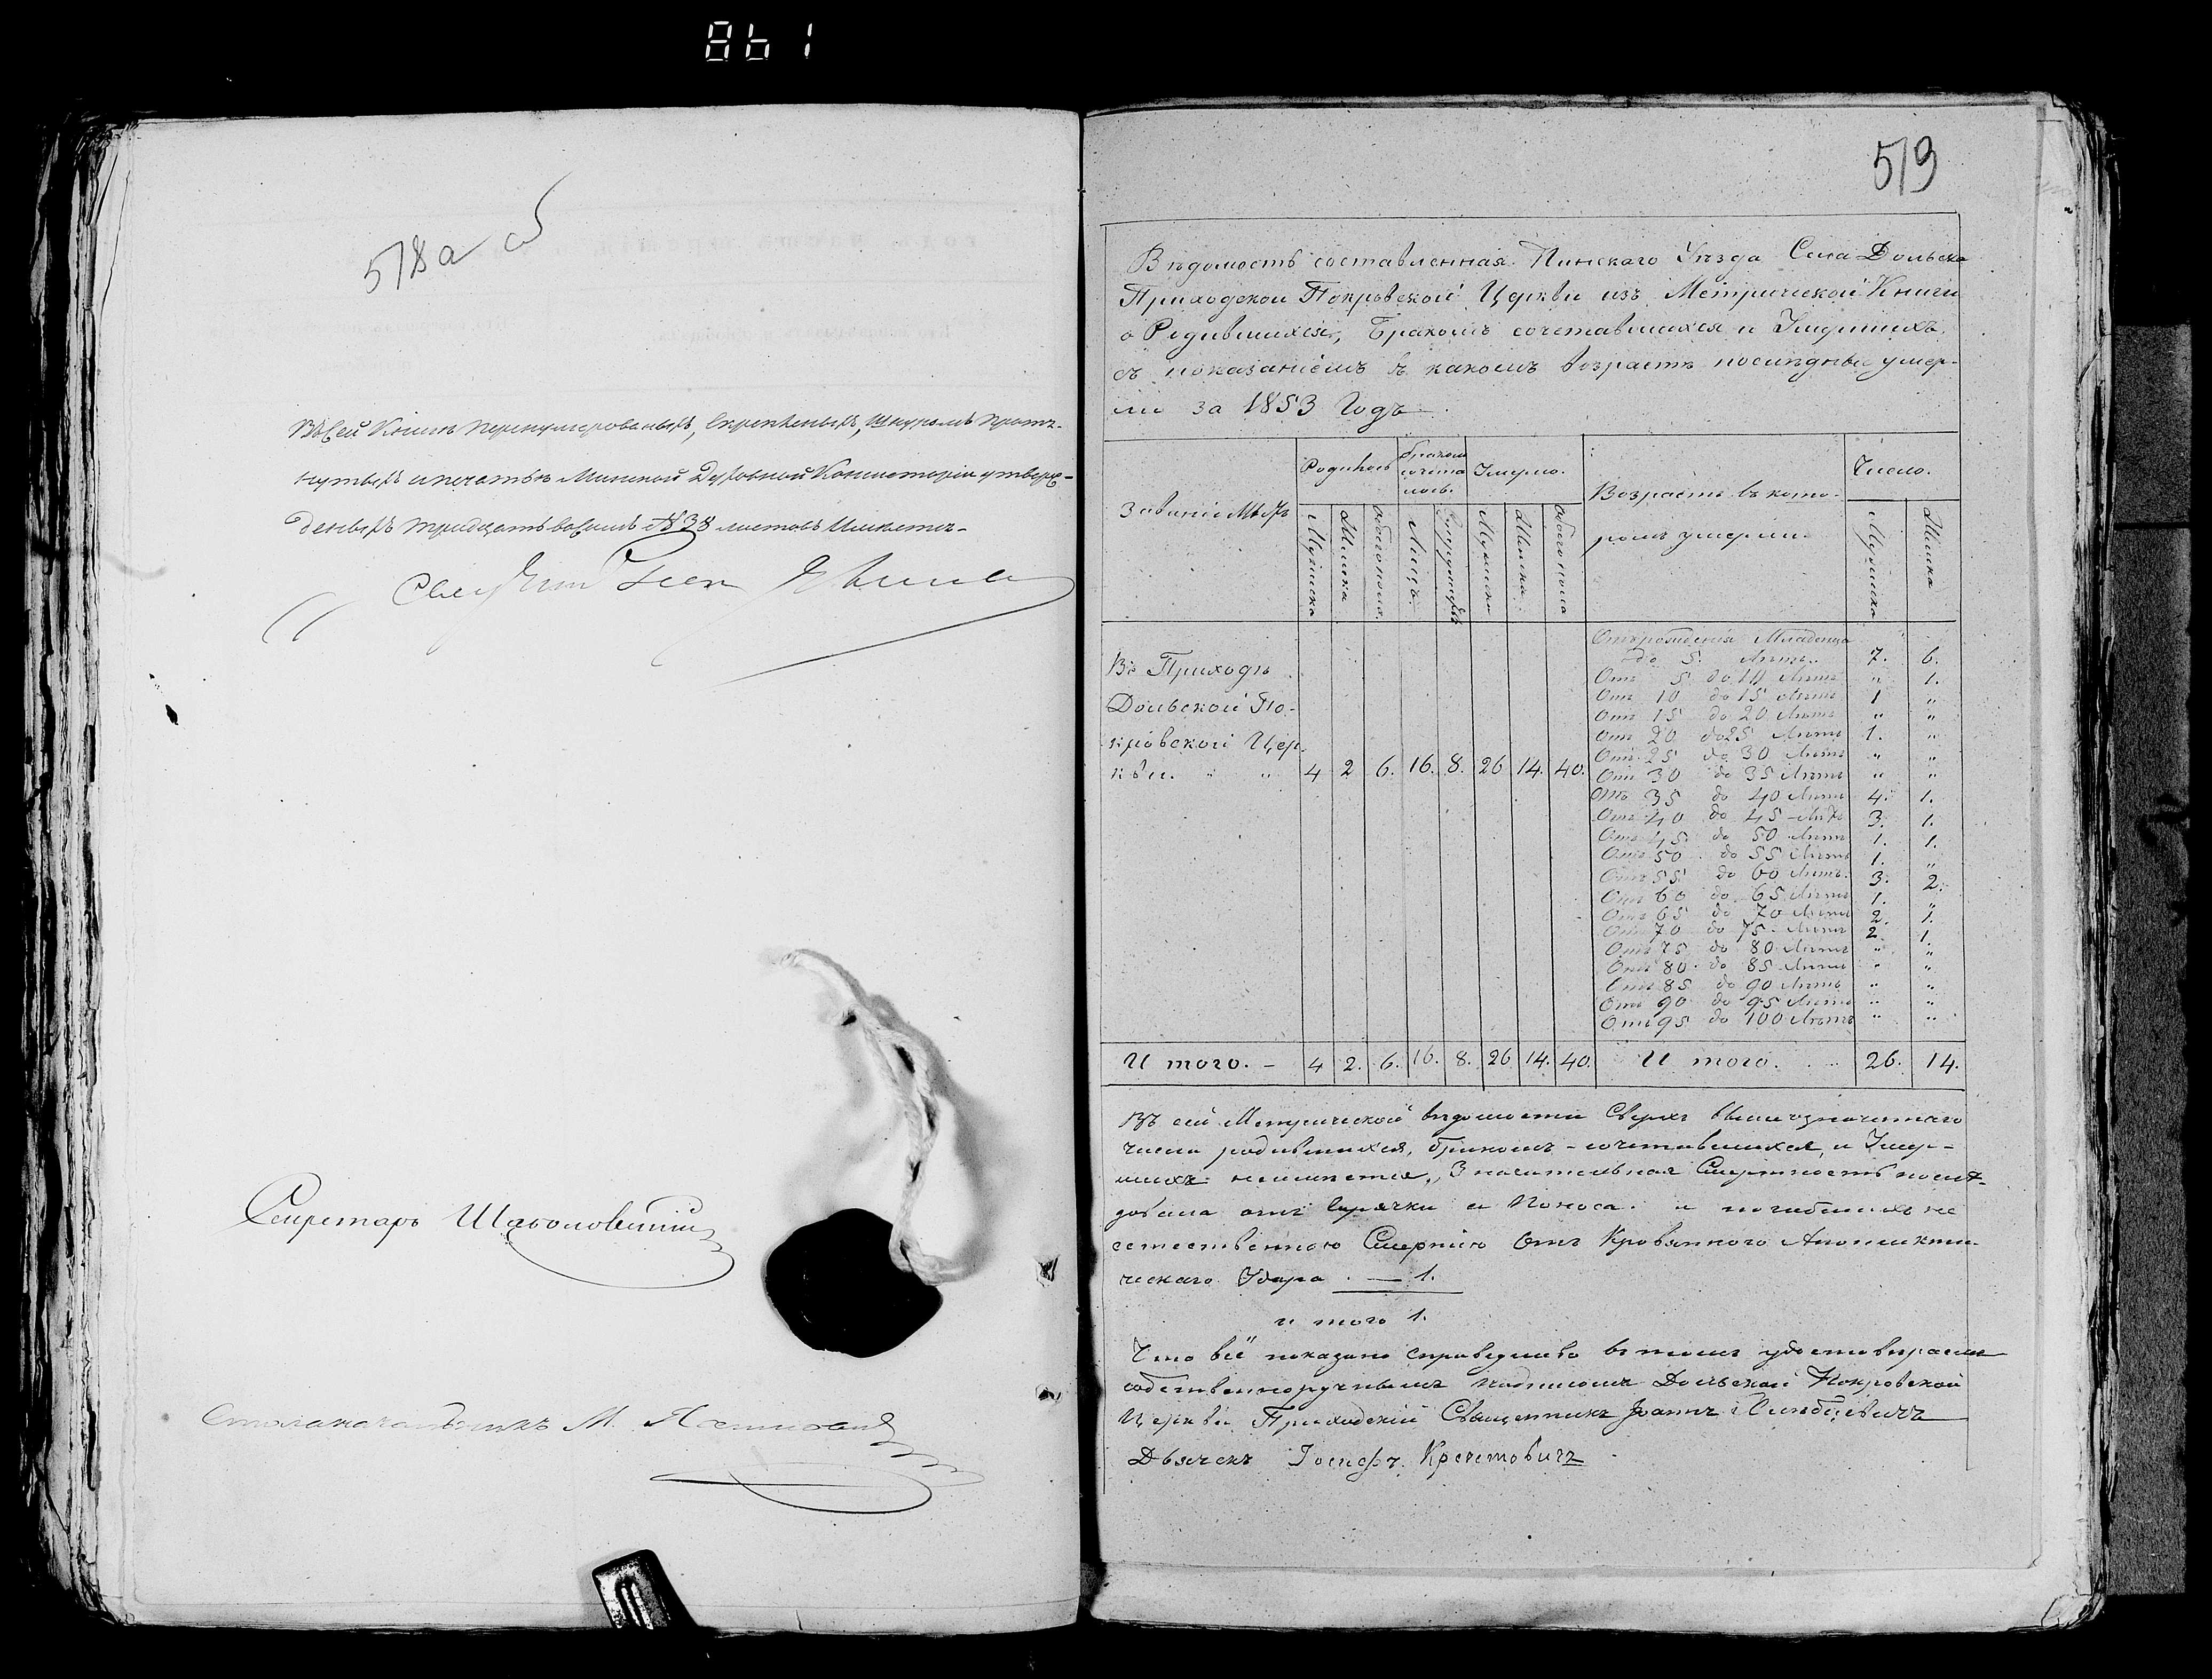 861
518а об
Въ сей Книгѣ перенумерованныхъ, скрѣпленныхъ, Шнуромъ протя-
нутыхъ и печатью Минской Духовной Консисторіи утверж-
денныхъ тридцать восемь №38 листовъ Имѣется-
Секретарь
Столоначальникъ М.
519
Вѣдомость составленная Пинскаго Уѣзда Села Дольска
Приходской Покровской Церкви изъ Метрической Книги
о Родившихся, Бракомъ сочетавшихся и Умершихъ
съ показаніемъ въ какомъ возрастѣ послѣдніе умер-
ли за 1853 Годъ
Званіе Мѣстъ
Родилось
Бракомъ сочеталось.
Умерло.
Возрастъ въ кото-
ромъ умерли.
Число.
Мужеска Женска Обоего пола Лицъ. Мужеска Женска Обоего пола Мужеска Женска
Въ Приходѣ
Дольской По-
кровской Цер-
кви. " " 4 2 6. 16. 8. 26 14. 40.
Отъ рожденія Младенца
до 5. Лѣтъ. 7. 6.
Отъ 5 до 10 Лѣтъ " 1.
Отъ 10 до 15 Лѣтъ 1 "
Отъ 15 до 20 Лѣтъ " "
Отъ 20 до 25 Лѣтъ 1. "
Отъ 25 до 30 Лѣтъ " "
Отъ 30 до 35 Лѣтъ " "
Отъ 35 до 40 Лѣтъ 4. 1.
Отъ 40 до 45 Лѣтъ 3. 1.
Отъ 45 до 50 Лѣтъ 1. 1.
Отъ 50 до 55 Лѣтъ 1. "
Отъ 55 до 60 Лѣтъ. 3. 2.
Отъ 60 до 65 Лѣтъ 1. "
Отъ 65 до 70 Лѣтъ 2. 1.
Отъ 70 до 75 Лѣтъ 2 1.
Отъ 75 до 80 Лѣтъ " "
Отъ 80 до 85 Лѣтъ " "
Отъ 85 до 90 Лѣтъ " "
Отъ 90 до 95 Лѣтъ " "
Отъ 95 до 100 Лѣтъ " "
И того. - 4 2. 6. 16. 8. 26 14. 40. И того. 26. 14.
Въ сей Метрической вѣдомости Сверхъ вышеозначеннаго
числа родившихся, бракомъ-сочетавшихся, и Умер-
шихъ неимѣется, Значительная Смертность послѣ-
довала отъ Горячки и Поноса. и погибшихъ не
естественною Смертію Отъ Кровяного Апоплекти-
ческаго Удара. — 1.
и того 1.
Что всё показано справедливо въ томъ удостовѣряемъ
собственноручнымъ подписомъ Дольской Покровской
Церкви Приходскій Священникъ Іоаннъ
Дьячекъ Іосифъ Кречетовичъ